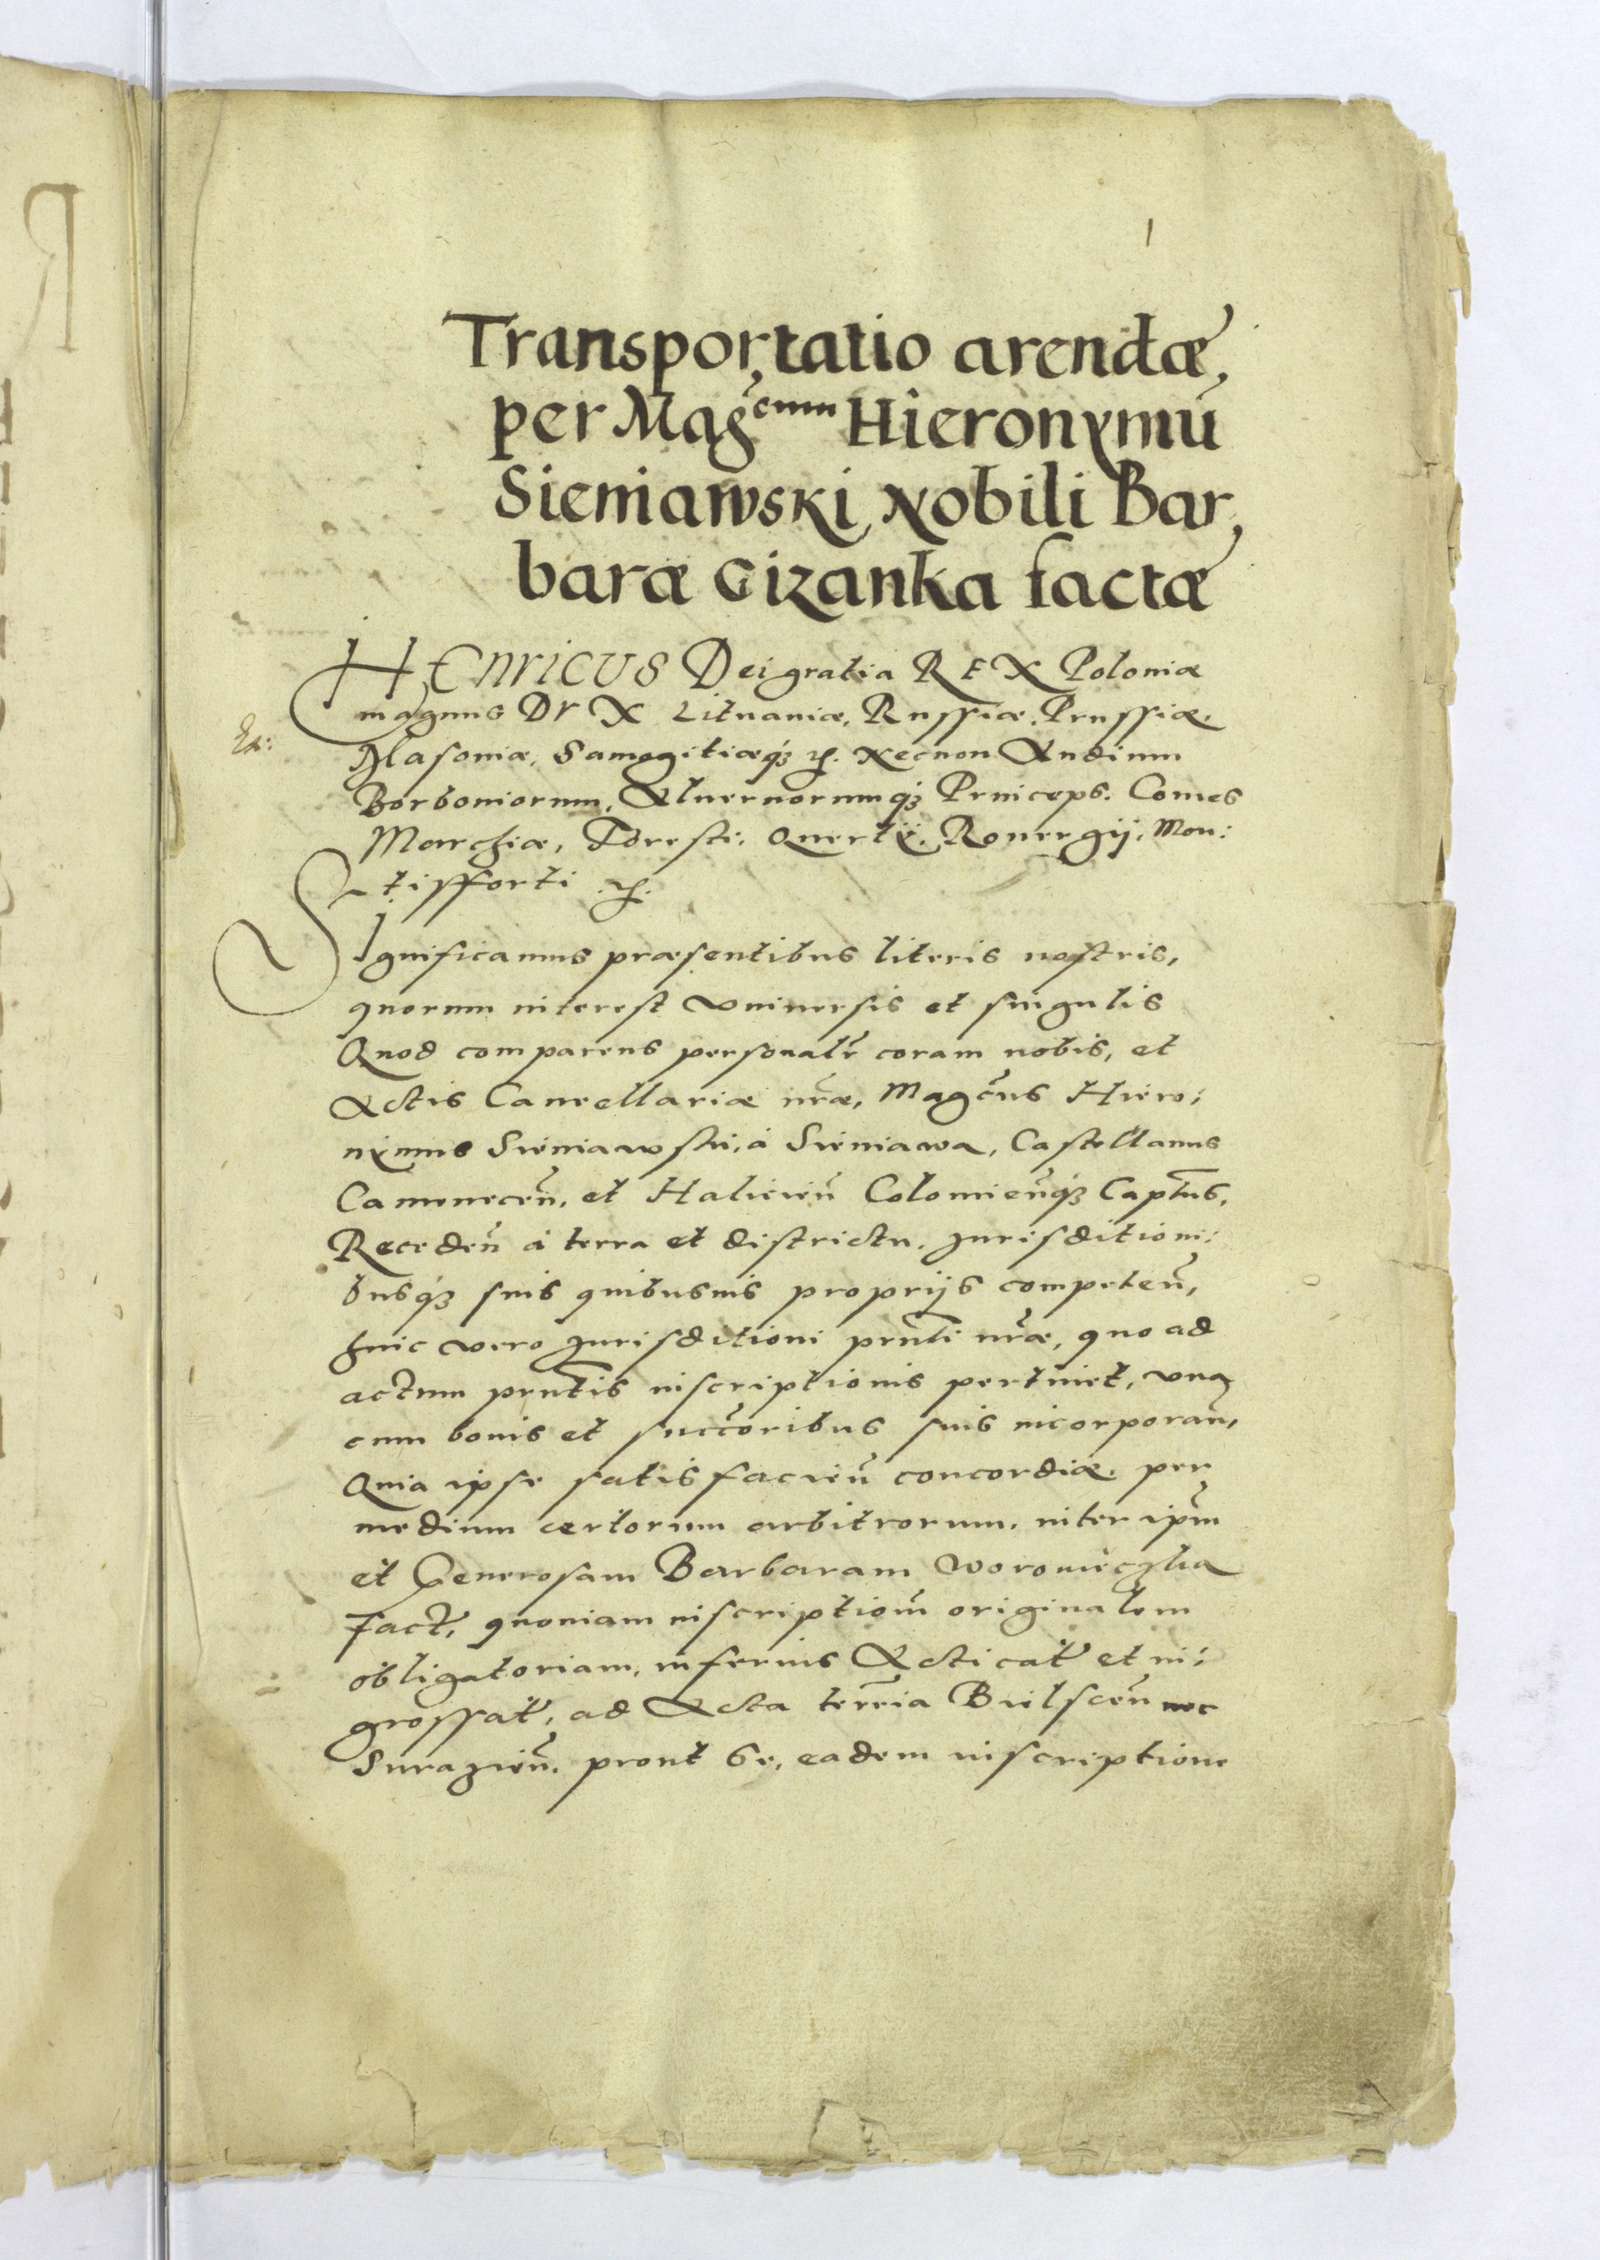 1
Transportatio arendæ,
per Mag͠cum Hieronymū
Sieniawski, Nobili Bar,
baræ Gizanka factæ
HENRICUS Dei gratia REX Poloniæ
magnus DVX Lituaniæ, Russiæ, Prussiæ,
Masouiæ, Samogitiæq́ꝫ ꝛc. Necnon Andium
Borboniorum, Aluernorumq́ꝫ Princeps. Comes
Marchiæ, Foresti, Quertÿ, Rouergij, Mon:
tisfforti ꝛc.
Significamus præsentibus literis nostris,
quorum interest vniuersis et singulis
Quod comparens personalr̃ coram nobis, et
Actis Cancellariæ nr̃æ, Magc̃us Hiero:
nymus Sieniawski, á Sieniawa, Castellanus
Camenecen̄, et Halicien̄ Colomien̄q́ꝫ Capt̃us,
Receden̄ á terra et districtu, Jurisditioni:
busq́ꝫ suis quibusuis proprijs competen̄,
huic vero Jurisditioni prn̄ti nr̃æ, quo ad
actum prn̄tis inscriptionis pertinet, vna
cum bonis et succ̃oribus suis incorporan̄,
Quia ipse satisfacien̄ concordiæ, per
medium certorum arbitrorum, inter ip̃m
et Generosam Barbaram
fact̃, quoniam inscription̄ originalem
obligatoriam, inferius Acticat̃ et in:
grossat̃, ad Acta terr̃ia Bielscen̄ nec
Surazien̄, prout se, eadem inscriptione